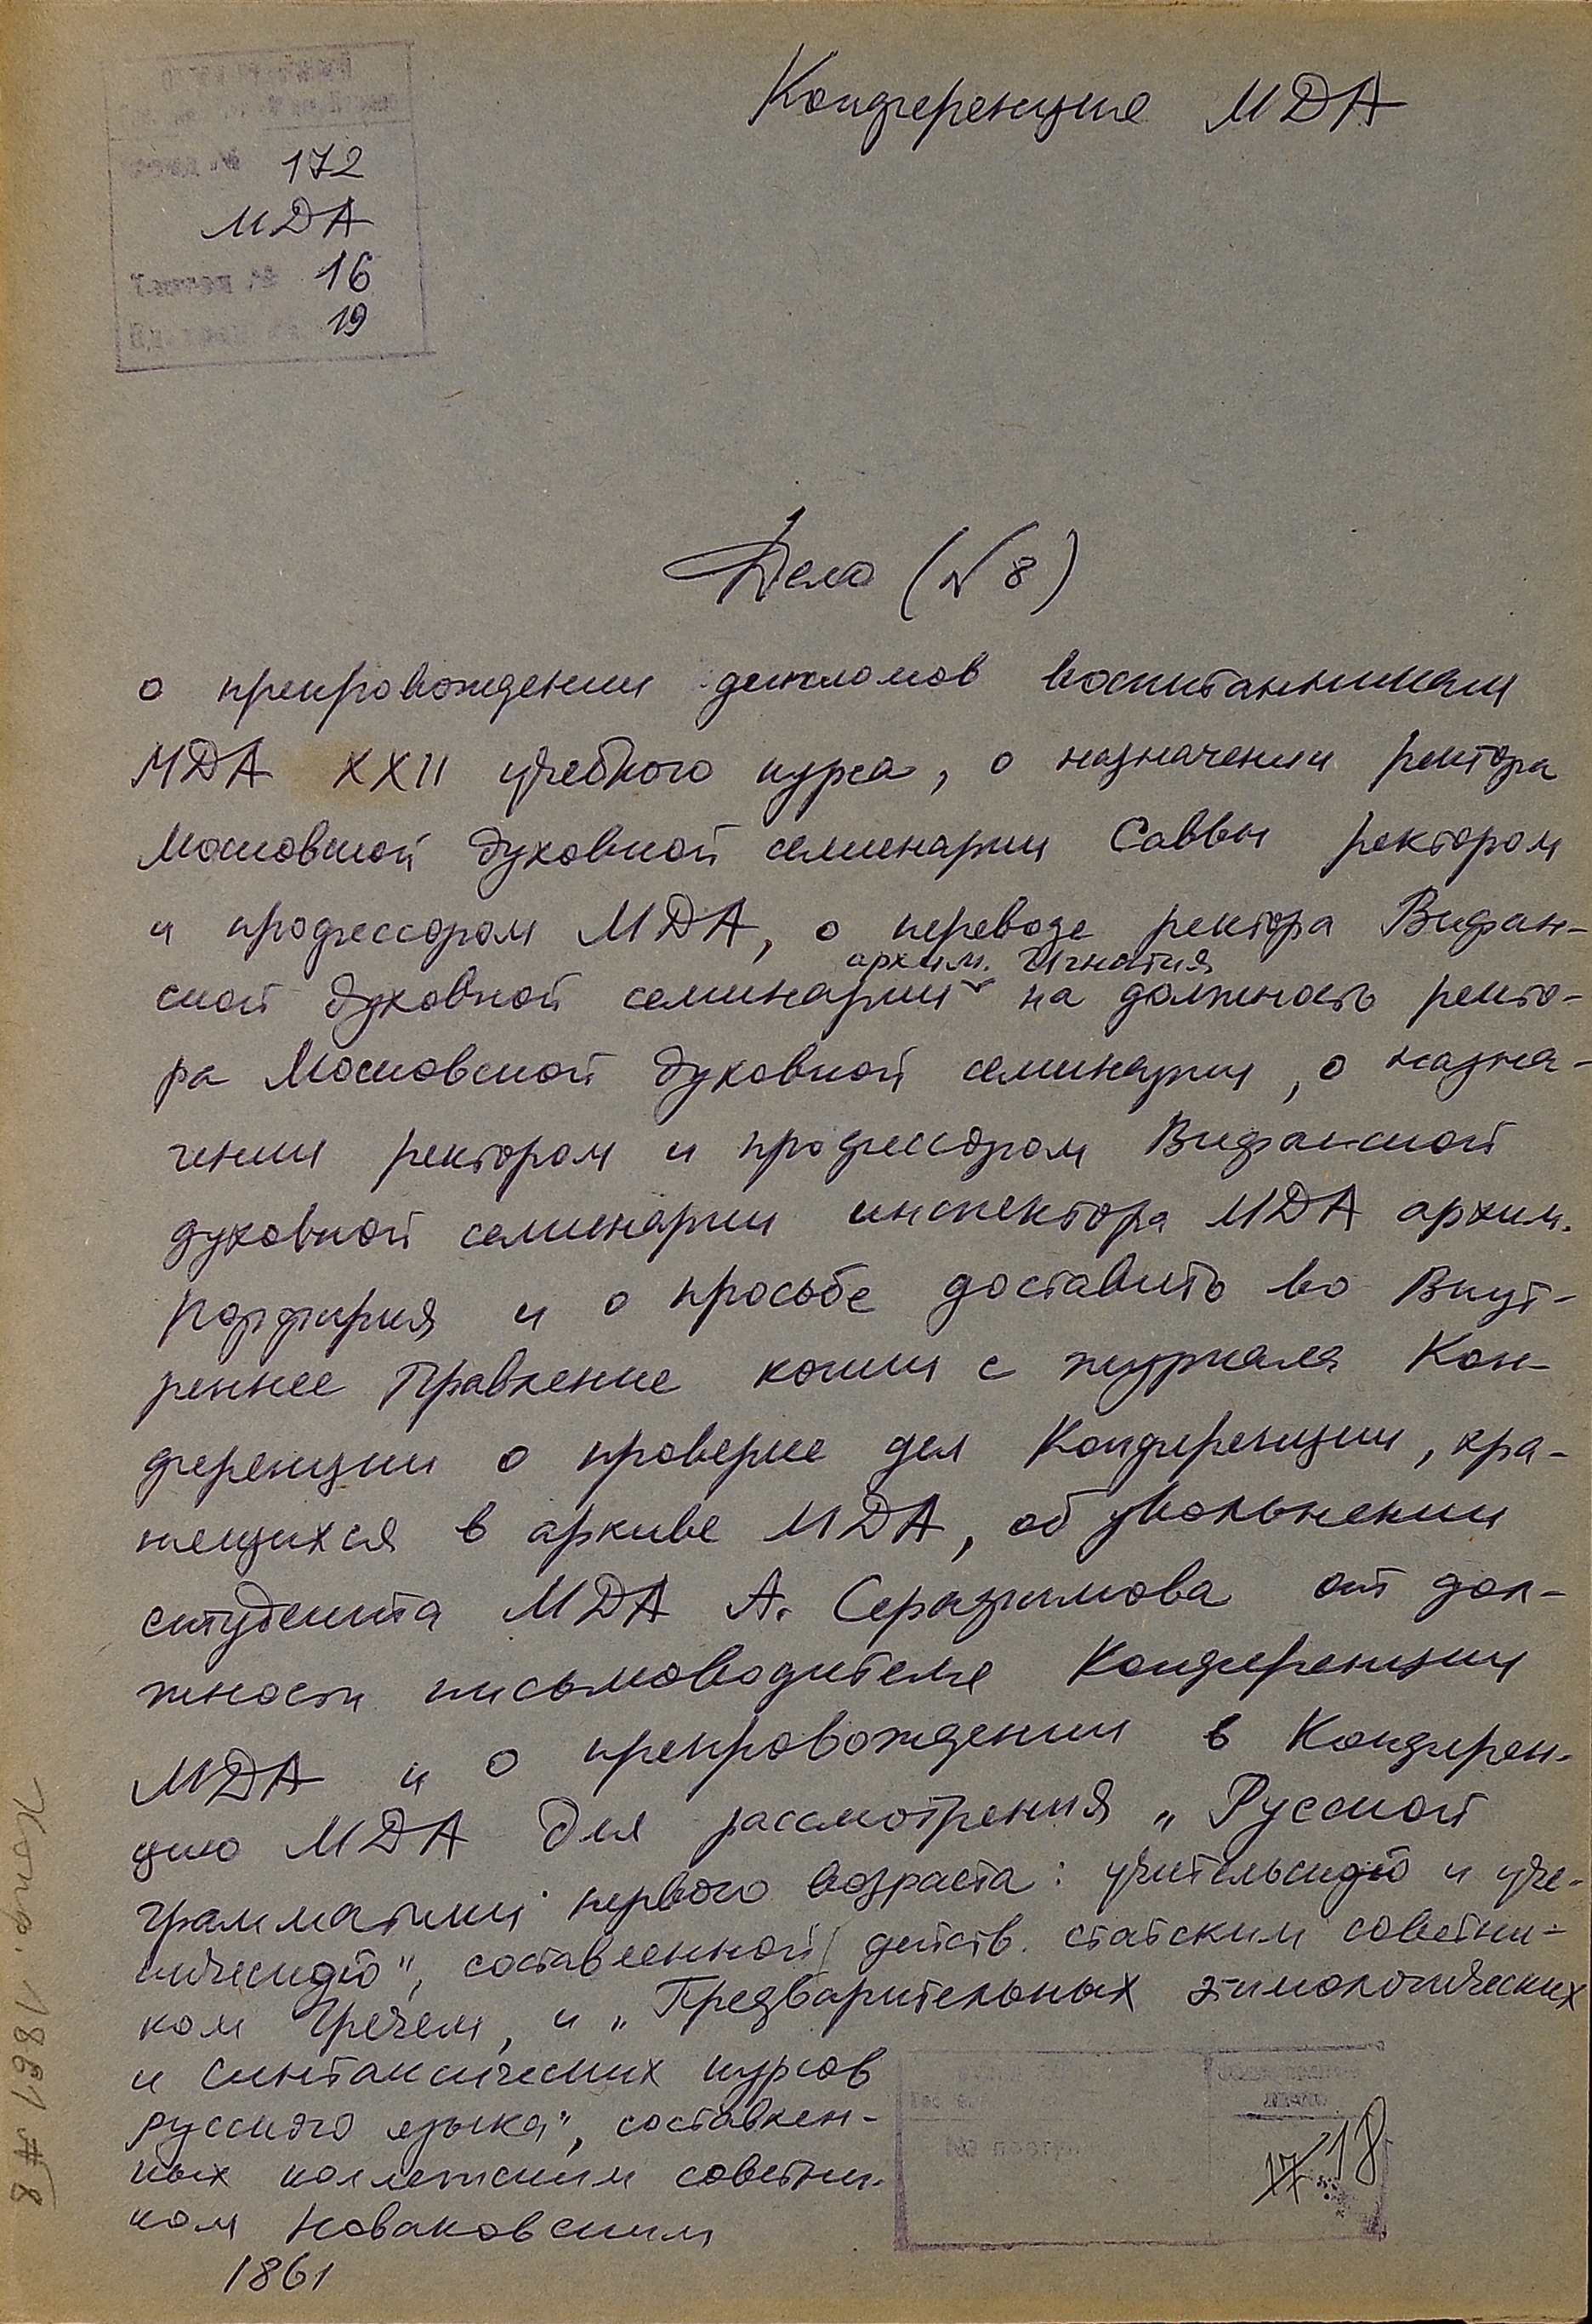 Конференция МДА
172
МДА
16
19
Дело (№ 8)
о препровождении дипломов воспитанникам
МДА XXII учебного курса, о назначении ректора
Московской духовной семинарии Саввы ректором
и профессором МДА, о переводе ректора Вифан-
архим. Игнатия
ской духовной семинарии на должность ректо-
ра Московской духовной семинарии, о назна-
чении ректором и профессором Вифанской
духовной семинарии инспектора МДА архим.
Порфирия и о просьбе доставить во Внут-
реннее Правление копии с журнала Кон-
ференции о проверке дел Конференции, хра-
нящихся в архиве МДА, об увольнении
студента МДА А. Серафимова от дол-
жности письмоводителя Конференции
МДА и о препровождении в Конферен-
цию МДА для рассмотрения „Русской
грамматики первого возраста: учительскую и уче-
ническую", составленной действ. статским советни-
ком Гречем, и „Предварительных этимологических
и синтаксических курсов
русского языка", составлен-
ных коллежским советни-
ком Новаковским
1861
17 18
Конф. 1861 # 8